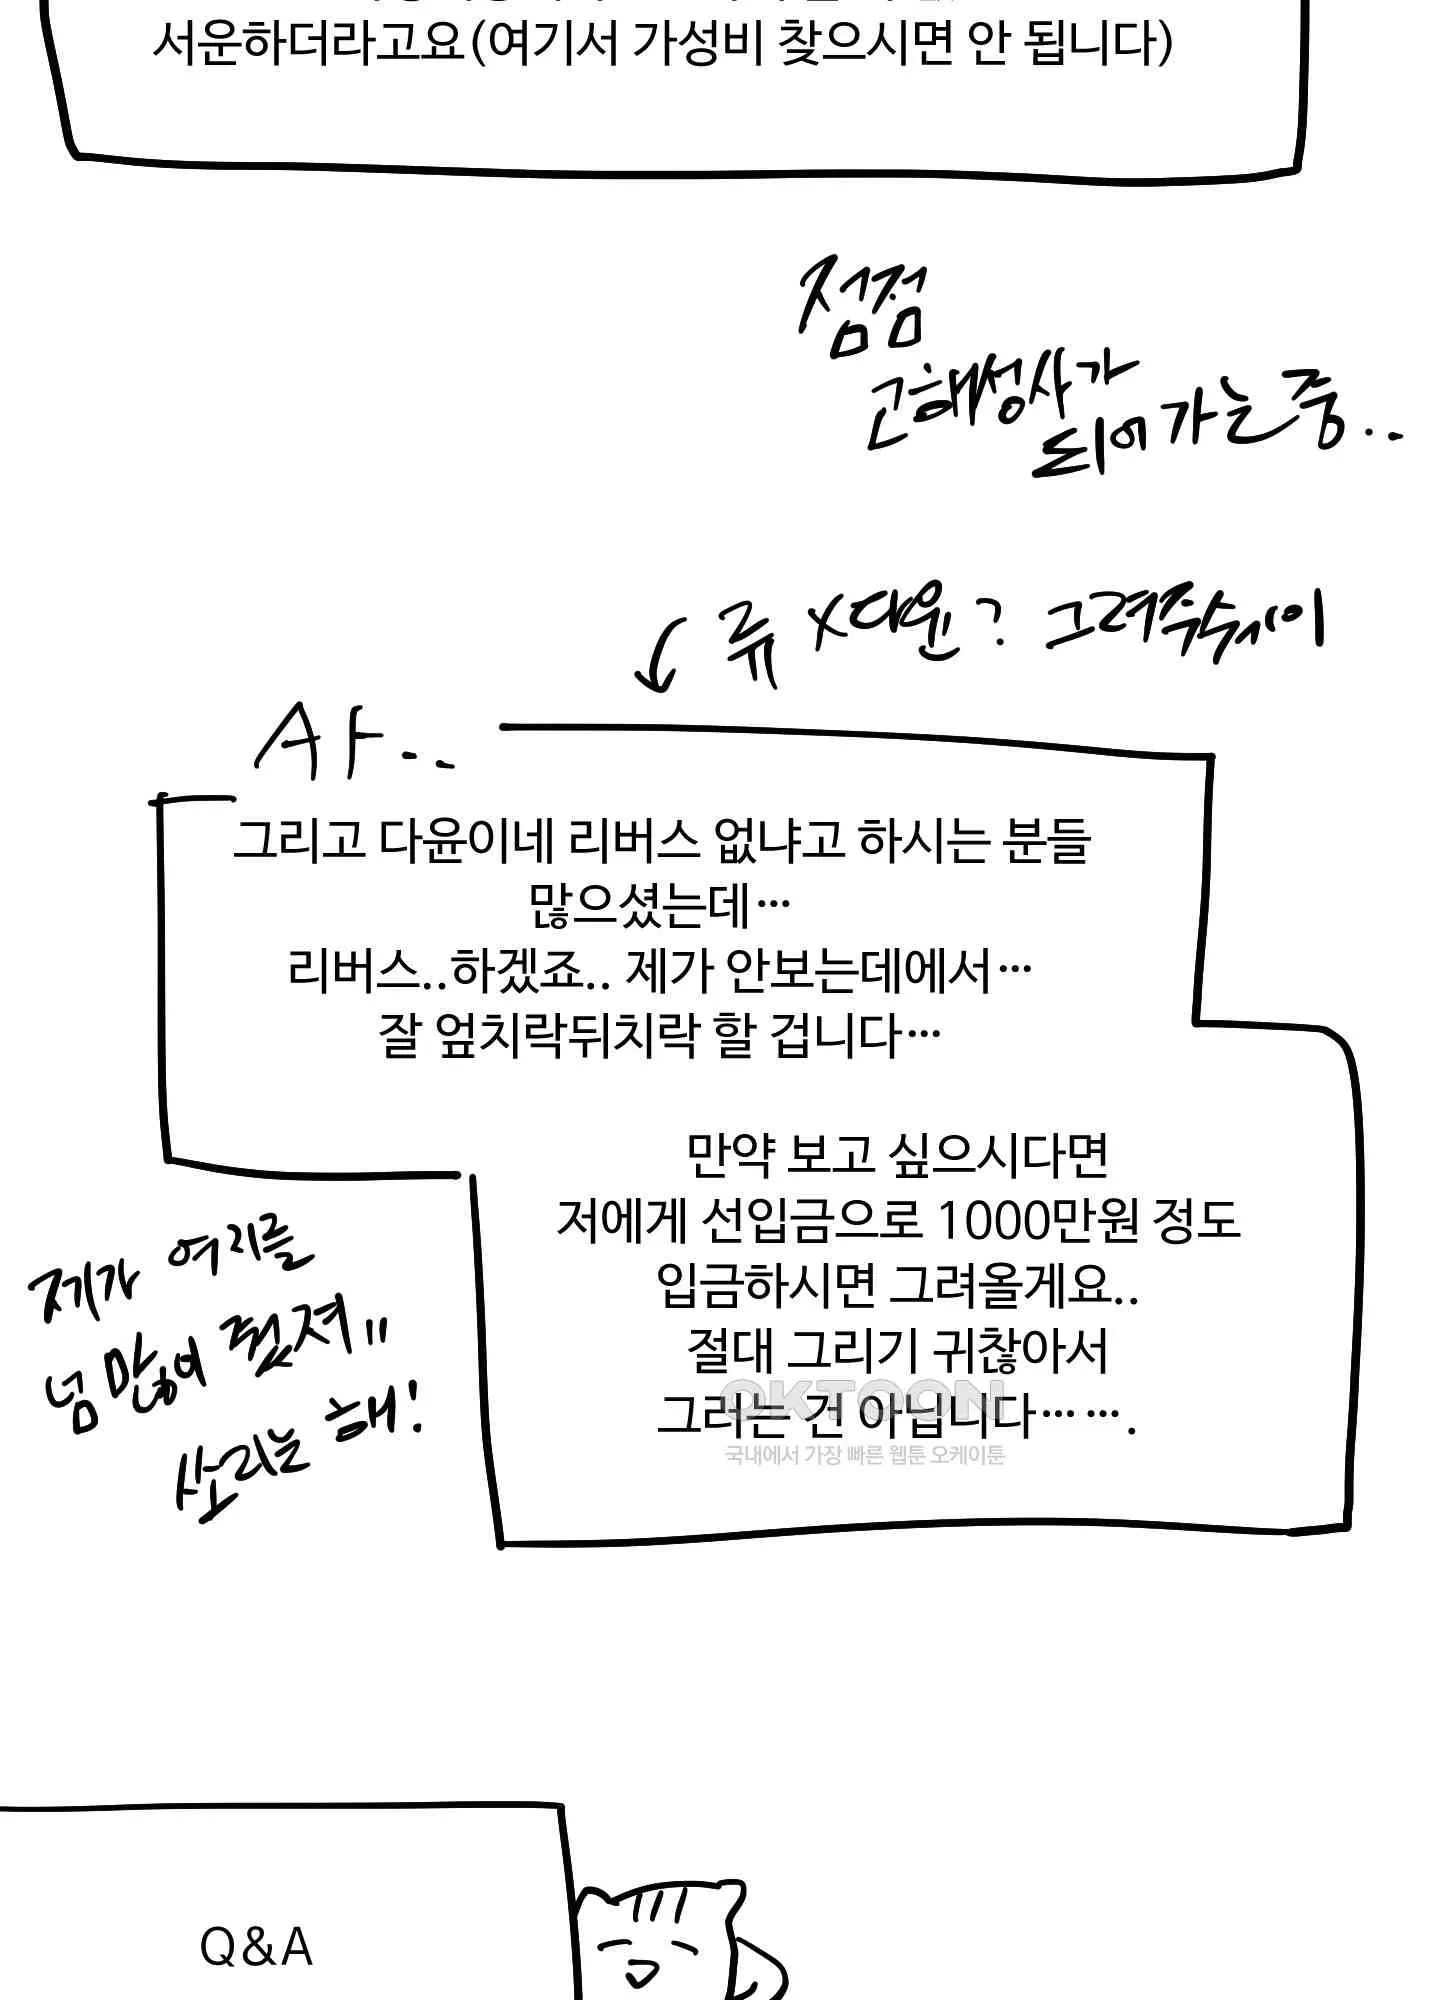 서운하더라고요(여기서 가성비 찾으시면 안 됩니다)
점점
고해성사가
되어가는 중..
류X다윤? 그려주숴이
사..
그리고 다윤이네 리버스 없냐고 하시는 분들
많으셨는데…
리버스..하겠죠.. 제가 안보는데에서…
잘 엎치락뒤치락 할 겁니다…
만약 보고 싶으시다면
저에게 선입금으로 1000만원 정도
입금하시면 그려올게요..
절대 그리기 귀찮아서
그리는 건 아닙니다… ….
OKTOON
국내에서 가장 빠른 웹툰 오케이툰
제가 여리를
넘 많이 굴려"
소리는 해!
Q&A